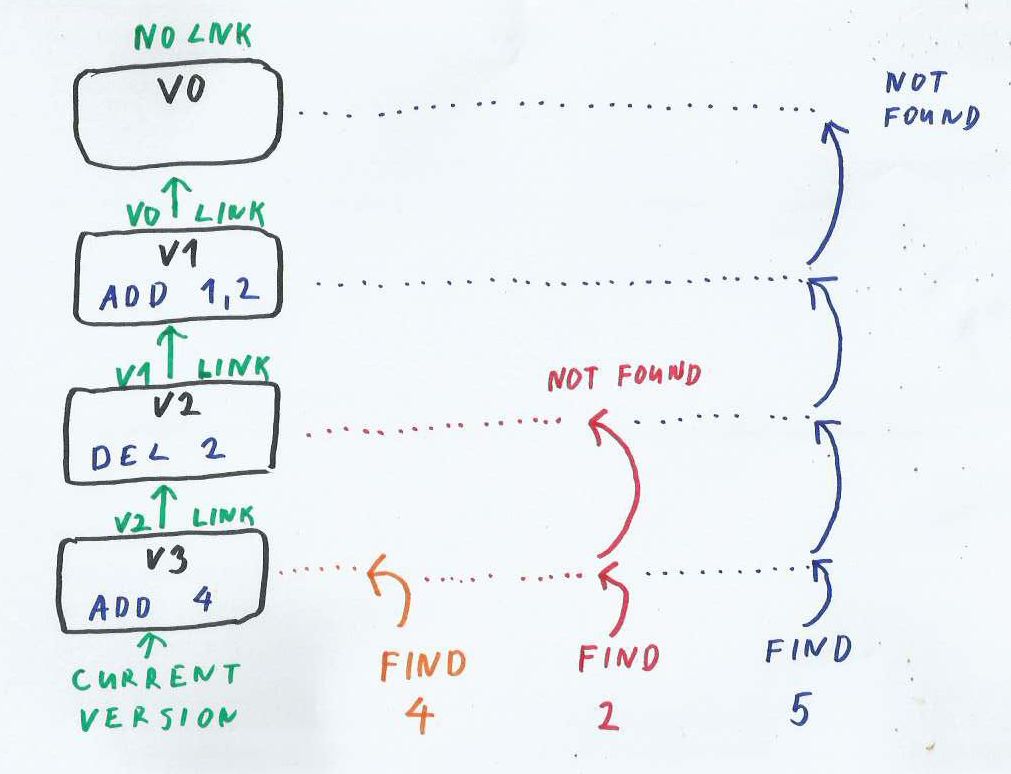 NO LNK
V0
NOT
FOUND
V0 LINK
V1
ADD 1,2
V1 LINK
NOT FOUND
V2
DEL 2
V2 LINK
V3
ADD 4
CURRENT
VERSION
FIND
4
FIND
2
FIND
5